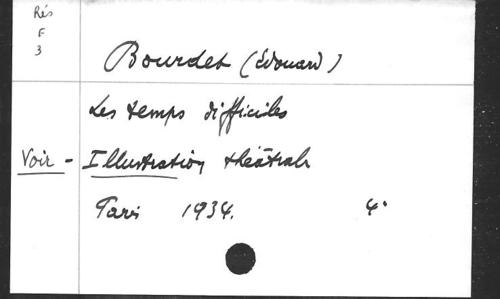 Rés
F
3
Bourdet (Édouard)
Les temps difficiles
Voir - Illustration théâtrale
Paris 1934. 4°